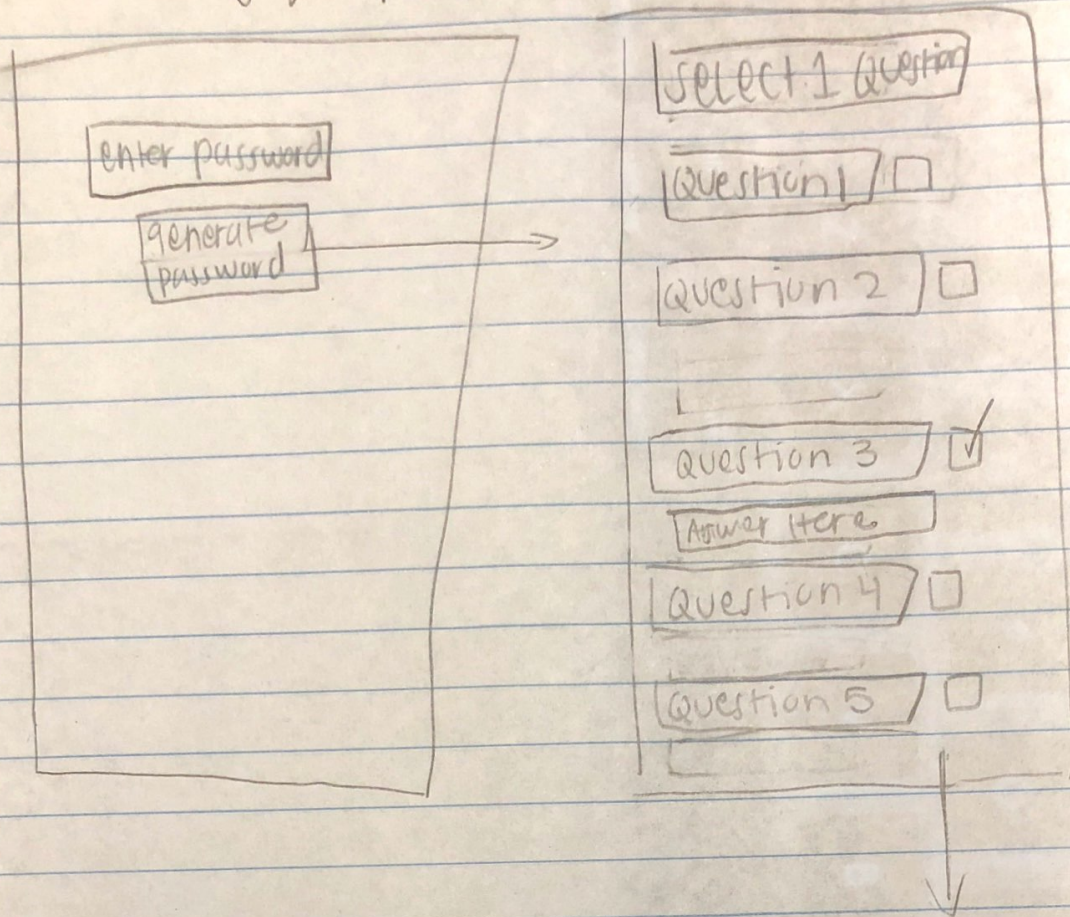 enter password
generate
password
select 1 Question
Question 1
Question 2
Question 3
Answer Here
Question 4
Question 5